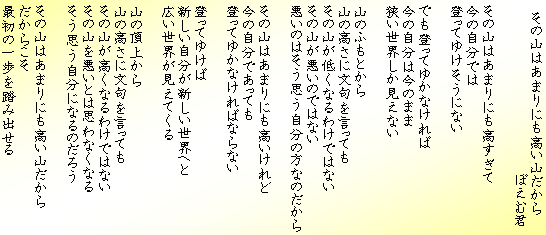 その山はあまりにも高い山だから
ぽえむ君
その山はあまりにも高すぎて
今の自分では
登ってゆけそうにない
でも登ってゆかなければ
今の自分は今のまま
狭い世界しか見えない
山のふもとから
山の高さに文句を言っても
その山が低くなるわけではない
その山が悪いのではない
悪いのはそう思う自分の方なのだから
その山はあまりにも高いけれど
今の自分であっても
登ってゆかなければならない
登ってゆけば
新しい自分が新しい世界へと
広い世界が見えてくる
山の頂上から
山の高さに文句を言っても
その山が高くなるわけではない
その山を悪いとは思わなくなる
そう思う自分になるのだろう
その山はあまりにも高い山だから
だからこそ
最初の一歩を踏み出せる